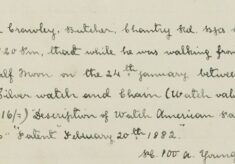 Crowley, Butcher, Chantry Rd.
20 Pm, that while he was walking from
alf Moon on the 24th January betwee
Silver watch and Chain (Watch val
16/-) Description of Watch American
"Patent" February 20th 1882."
P.C. 100 A. Young